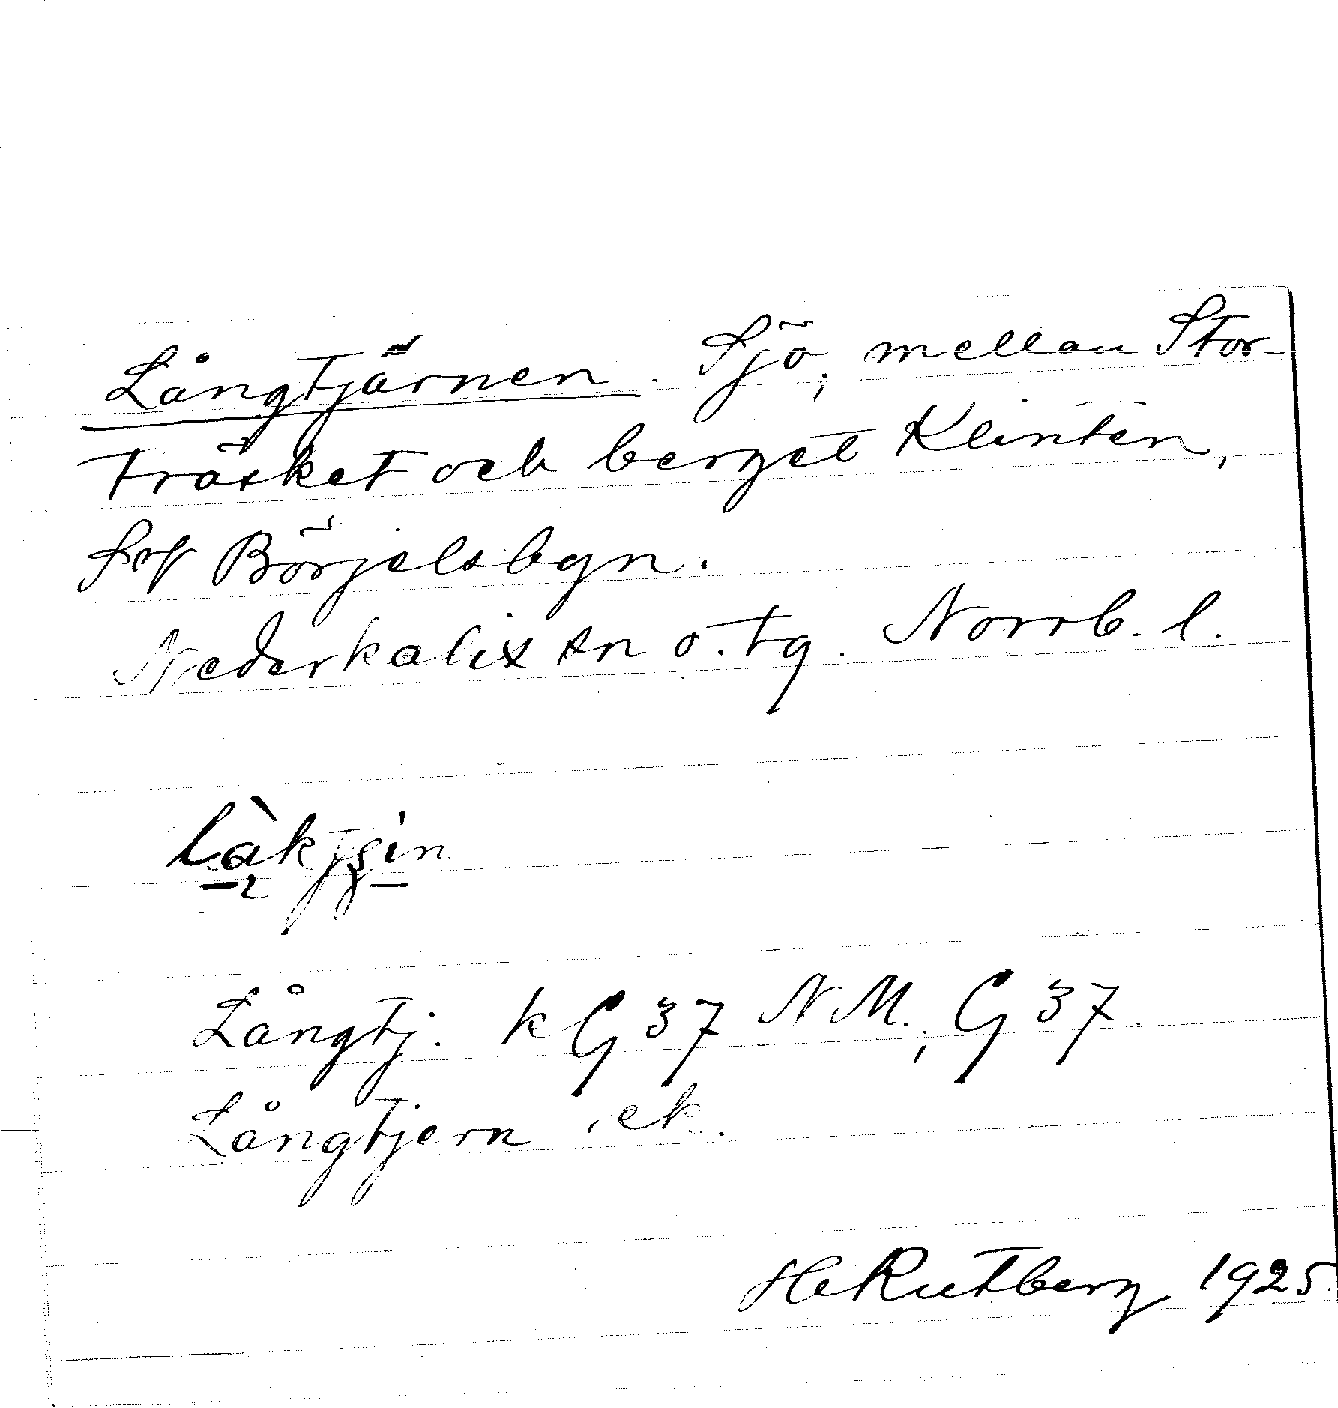 Långtjärnen. Sjö, mellan Stor-
träsket och berget Klinten,
Börjelsbyn.
Nederkalix sn o. tg. Norrb. l.
Långtj. k G 37 NM., G 37
Långtjern ek.
H Rutberg 1925